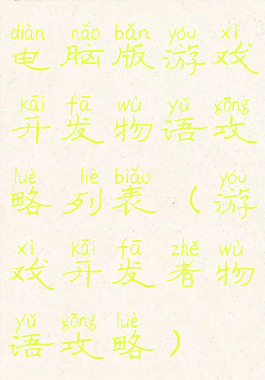 diàn nǎo bǎn yóu xì
电脑版游戏
kāi fā wù yǔ gōng
开发物语攻
lüè liè biǎo yóu
略列表（游
xì kāi fā zhě wù
戏开发者物
yǔ gōng lüè
语攻略）